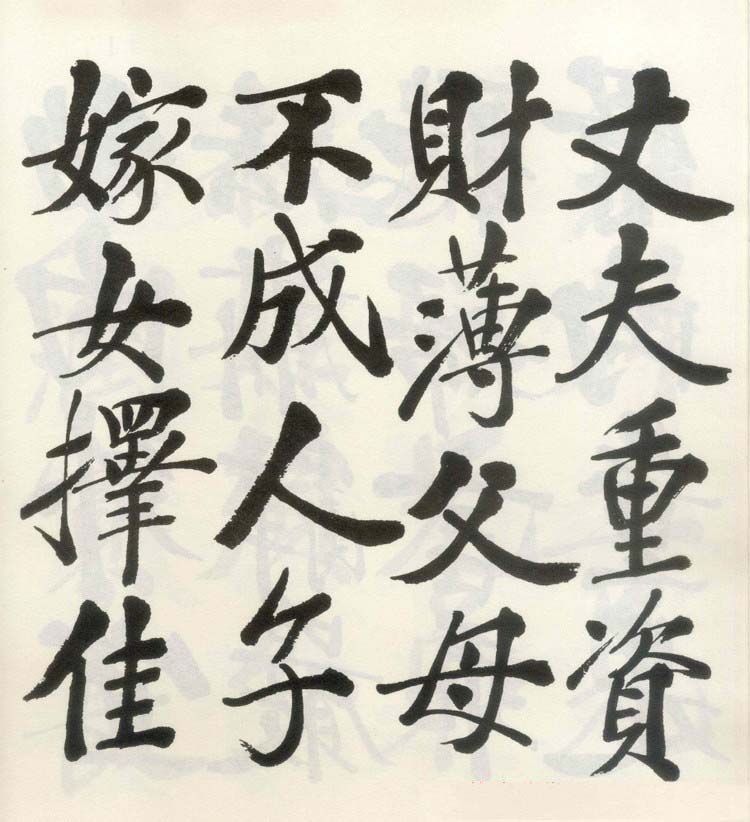 丈夫重資
財薄父母
不成人子
嫁女擇佳